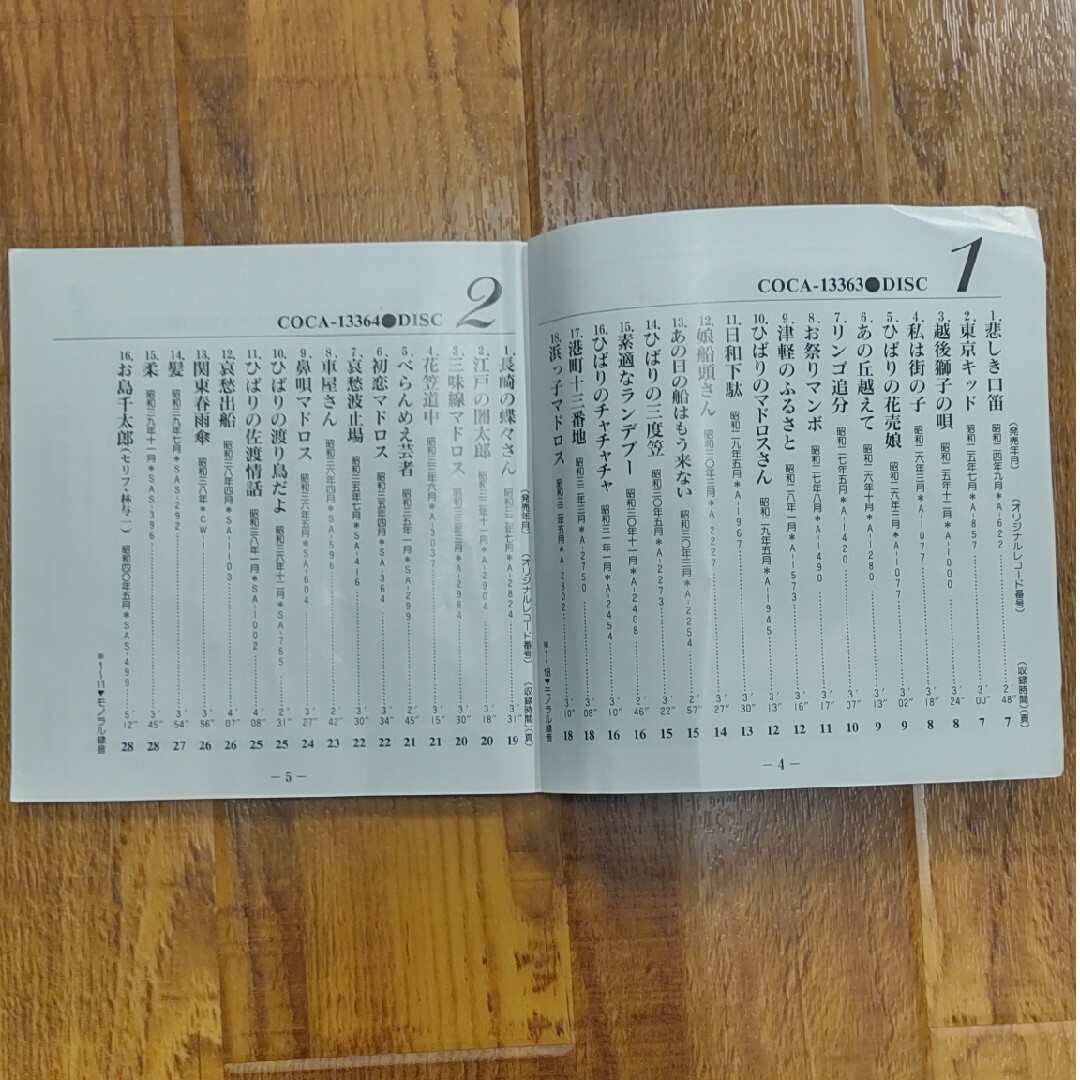 COCA-13363●DISC 1
(発売年月) (オリジナルレコード番号) (収録時間)(頁)
1. 悲しき口笛 昭和二四年九月*A-622 2'48" 7
2. 東京キッド 昭和二五年七月*A-857 3'00" 7
3. 越後獅子の唄 昭和二五年十二月*A-1000 3'24" 8
4. 私は街の子 昭和二六年三月*A-1077 3'18" 8
5. ひばりの花売娘 昭和二六年三月*A-1077 3'02" 9
6. あの丘越えて 昭和二六年十月*A-1280 3'13" 9
7. リンゴ追分 昭和二七年五月*A-1420 3'07" 10
8. お祭りマンボ 昭和二七年八月*A-1490 3'17" 11
9. 津軽のふるさと 昭和二八年一月*A-1573 3'16" 12
10. ひばりのマドロスさん 昭和二九年五月*A-1945 3'13" 12
11. 日和下駄 昭和二九年五月*A-1967 3'30" 13
12. 娘船頭さん 昭和三〇年三月*A-2227 3'27" 14
13. あの日の船はもう来ない 昭和三〇年三月*A-2254 2'57" 15
14. ひばりの三度笠 昭和三〇年五月*A-2273 3'22" 15
15. 素適なランデブー 昭和三〇年十一月*A-2408 2'46" 16
16. ひばりのチャチャチャ 昭和三一年一月*A-2454 3'10" 16
17. 港町十三番地 昭和三二年三月*A-2750 3'08" 18
18. 浜っ子マドロス 昭和三二年五月*A-2802 3'10" 18
※1〜18▼モノラル録音
—4—
COCA-13364●DISC 2
(発売年月) (オリジナルレコード番号) (収録時間)(頁)
1. 長崎の蝶々さん 昭和三二年七月*A-2824 3'31" 19
2. 江戸の闇太郎 昭和三二年十一月*A-2904 3'18" 20
3. 三味線マドロス 昭和三三年三月*A-2984 3'30" 20
4. 花笠道中 昭和三三年六月*A-3037 3'15" 21
5. べらんめえ芸者 昭和三五年一月*SA-299 2'45" 21
6. 初恋マドロス 昭和三五年四月*SA-364 3'34" 22
7. 哀愁波止場 昭和三五年七月*SA-416 3'30" 22
8. 車屋さん 昭和三六年四月*SA-596 2'42" 23
9. 鼻唄マドロス 昭和三六年五月*SA-604 3'27" 24
10. ひばりの渡り鳥だよ 昭和三六年十二月*SA-755 2'31" 25
11. ひばりの佐渡情話 昭和三八年一月*SA-1002 4'08" 25
12. 哀愁出船 昭和三八年四月*SA-1103 4'07" 26
13. 関東春雨傘 昭和三八年*CW 3'56" 26
14. 髪 昭和三九年七月*SAS-292 3'54" 27
15. 柔 昭和三九年十一月*SAS-396 3'45" 28
16. お島千太郎(セリフ・林与一) 昭和四〇年五月*SAS-499 5'12" 28
※1〜11▼モノラル録音
—5—